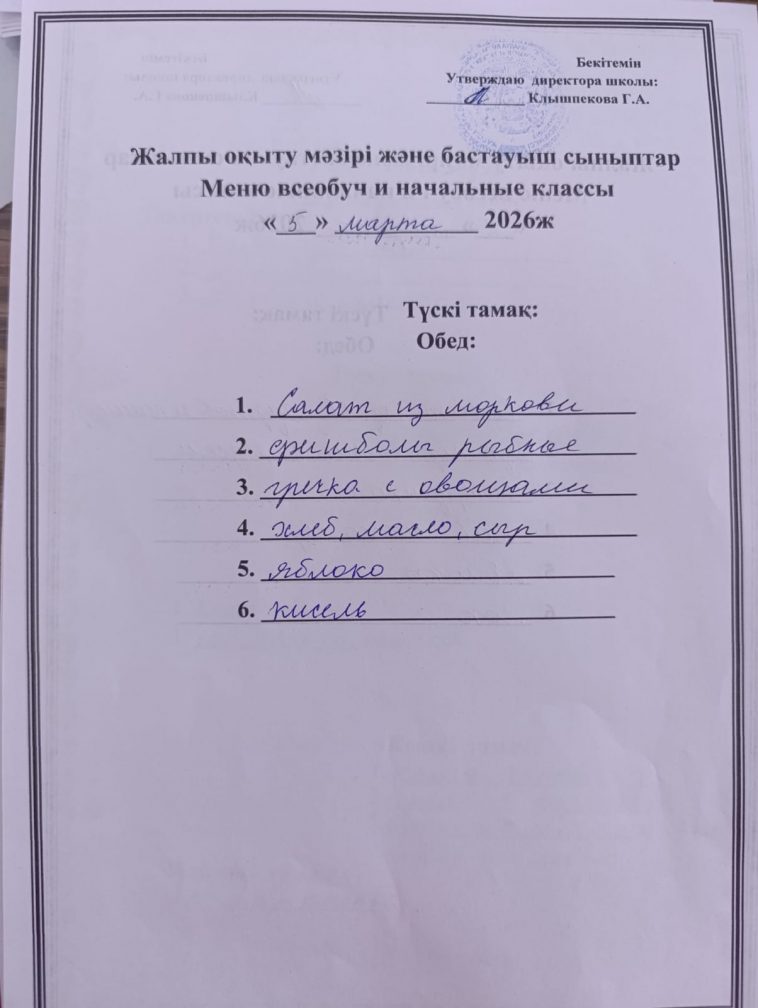 Бекітемін
Утверждаю директора школы:
Клышпекова Г.А.
Жалпы оқыту мәзірі және бастауыш сыныптар
Меню всеобуч и начальные классы
«5» марта 2026ж
Түскі тамақ:
Обед:
1. Салат из моркови
2. фишболы рыбные
3. гречка с овощами
4. хлеб, масло, сыр
5. яблоко
6. кисель